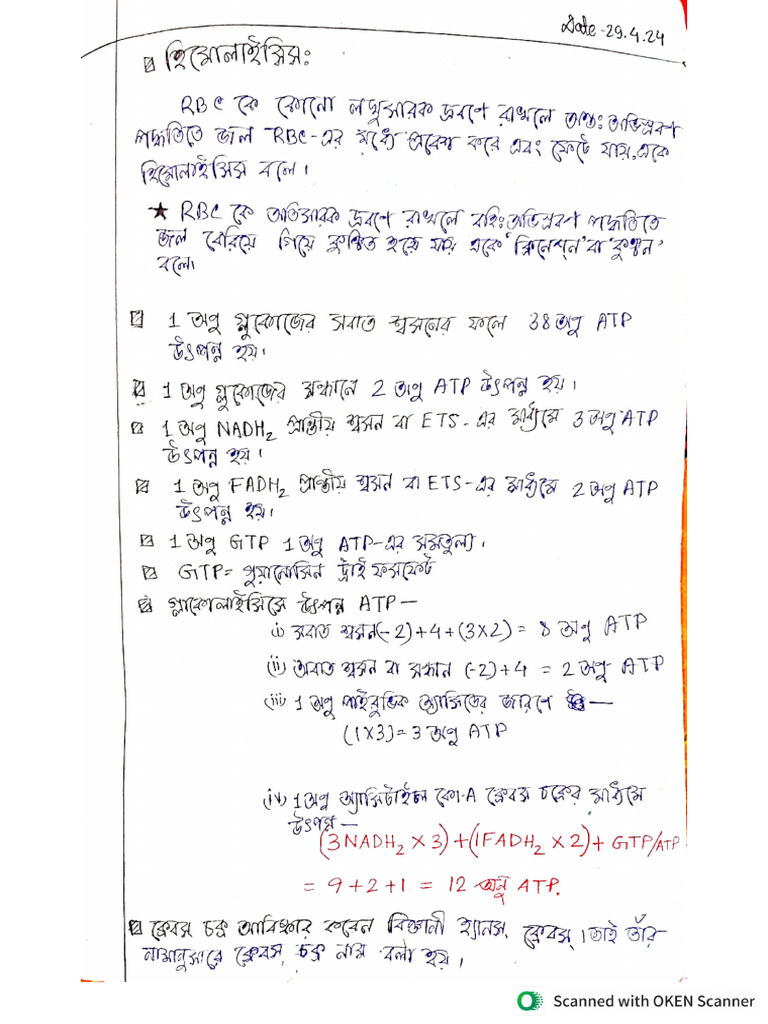 Date-29.4.24
হিমোলাইসিস:
RBC কে কোনো লঘুসারক দ্রবণে রাখলে অন্তঃঅভিস্রবণ
পদ্ধতিতে জল RBC-এর মধ্যে প্রবেশ করে এবং ফেটে যায়, একে
হিমোলাইসিস বলে।
★ RBC কে অতিসারক দ্রবণে রাখলে বহিঃঅভিস্রবণ পদ্ধতিতে
জল বেরিয়ে গিয়ে কুঞ্চিত হয়ে যায় একে 'ক্রিনেশন' বা 'কুঞ্চন'
বলে।
1 অণু গ্লুকোজের সবাত শ্বসনের ফলে 38 অণু ATP
উৎপন্ন হয়।
1 অণু গ্লুকোজের সন্ধানে 2 অণু ATP উৎপন্ন হয়।
1 অণু NADH₂ প্রান্তীয় শ্বসন বা ETS-এর মাধ্যমে 3 অণু ATP
উৎপন্ন হয়।
1 অণু FADH₂ প্রান্তীয় শ্বসন বা ETS-এর মাধ্যমে 2 অণু ATP
উৎপন্ন হয়।
1 অণু GTP 1 অণু ATP-এর সমতুল্য।
GTP = গুয়ানোসিন ট্রাই ফসফেট
গ্লাকোলাইসিসে উৎপন্ন ATP—
i) সবাত শ্বসন (-2)+4+(3×2) = 8 অণু ATP
(ii) অবাত শ্বসন বা সন্ধান (-2)+4 = 2 অণু ATP
(iii) 1 অণু পাইরুভিক অ্যাসিডের জারণে —
(1×3) = 3 অণু ATP
(iv) 1 অণু অ্যাসিটাইল কো-A ক্রেবস চক্রের মাধ্যমে
উৎপন্ন —
(3NADH₂ × 3)+(1FADH₂ × 2)+ GTP/ATP
= 9+2+1 = 12 অনু ATP.
ক্রেবস চক্র আবিষ্কার করেন বিজ্ঞানী হ্যানস্ ক্রেবস্। তাই তাঁর
নামানুসারে ক্রেবস্ চক্র নাম বলা হয়।
Scanned with OKEN Scanner